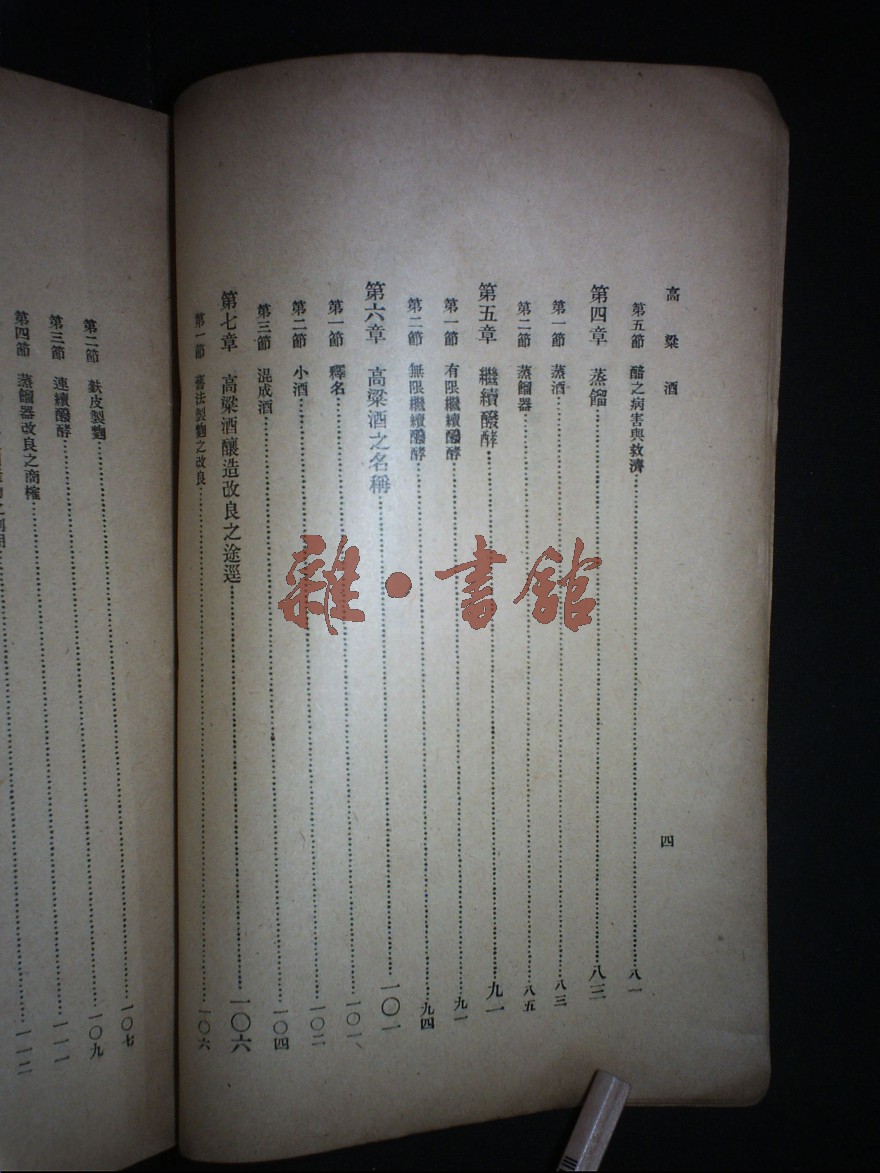 高粱酒
四
第五節 醅之病害與救濟 八一
第四章 蒸餾 八三
第一節 蒸酒 八三
第二節 蒸餾器 八五
第五章 繼續醱酵 九一
第一節 有限繼續醱酵 九一
第二節 無限繼續醱酵 九四
第六章 高粱酒之名稱 一〇一
第一節 釋名 一〇一
第二節 小酒 一〇二
第三節 混成酒 一〇四
第七章 高粱酒釀造改良之途逕 一〇六
第一節 舊法製麴之改良 一〇六
第二節 麩皮製麴 一〇七
第三節 連續醱酵 一〇九
第四節 蒸餾器改良之商榷 一一一
一一二
雜·書館